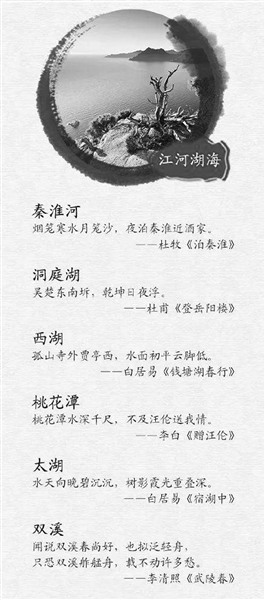 江河湖海
秦淮河
烟笼寒水月笼沙，夜泊秦淮近酒家。
——杜牧《泊秦淮》
洞庭湖
吴楚东南坼，乾坤日夜浮。
——杜甫《登岳阳楼》
西湖
孤山寺外贾亭西，水面初平云脚低。
——白居易《钱塘湖春行》
桃花潭
桃花潭水深千尺，不及汪伦送我情。
——李白《赠汪伦》
太湖
水天向晚碧沉沉，树影霞光重叠深。
——白居易《宿湖中》
双溪
闻说双溪春尚好，也拟泛轻舟，
只恐双溪舴艋舟，载不动许多愁。
——李清照《武陵春》